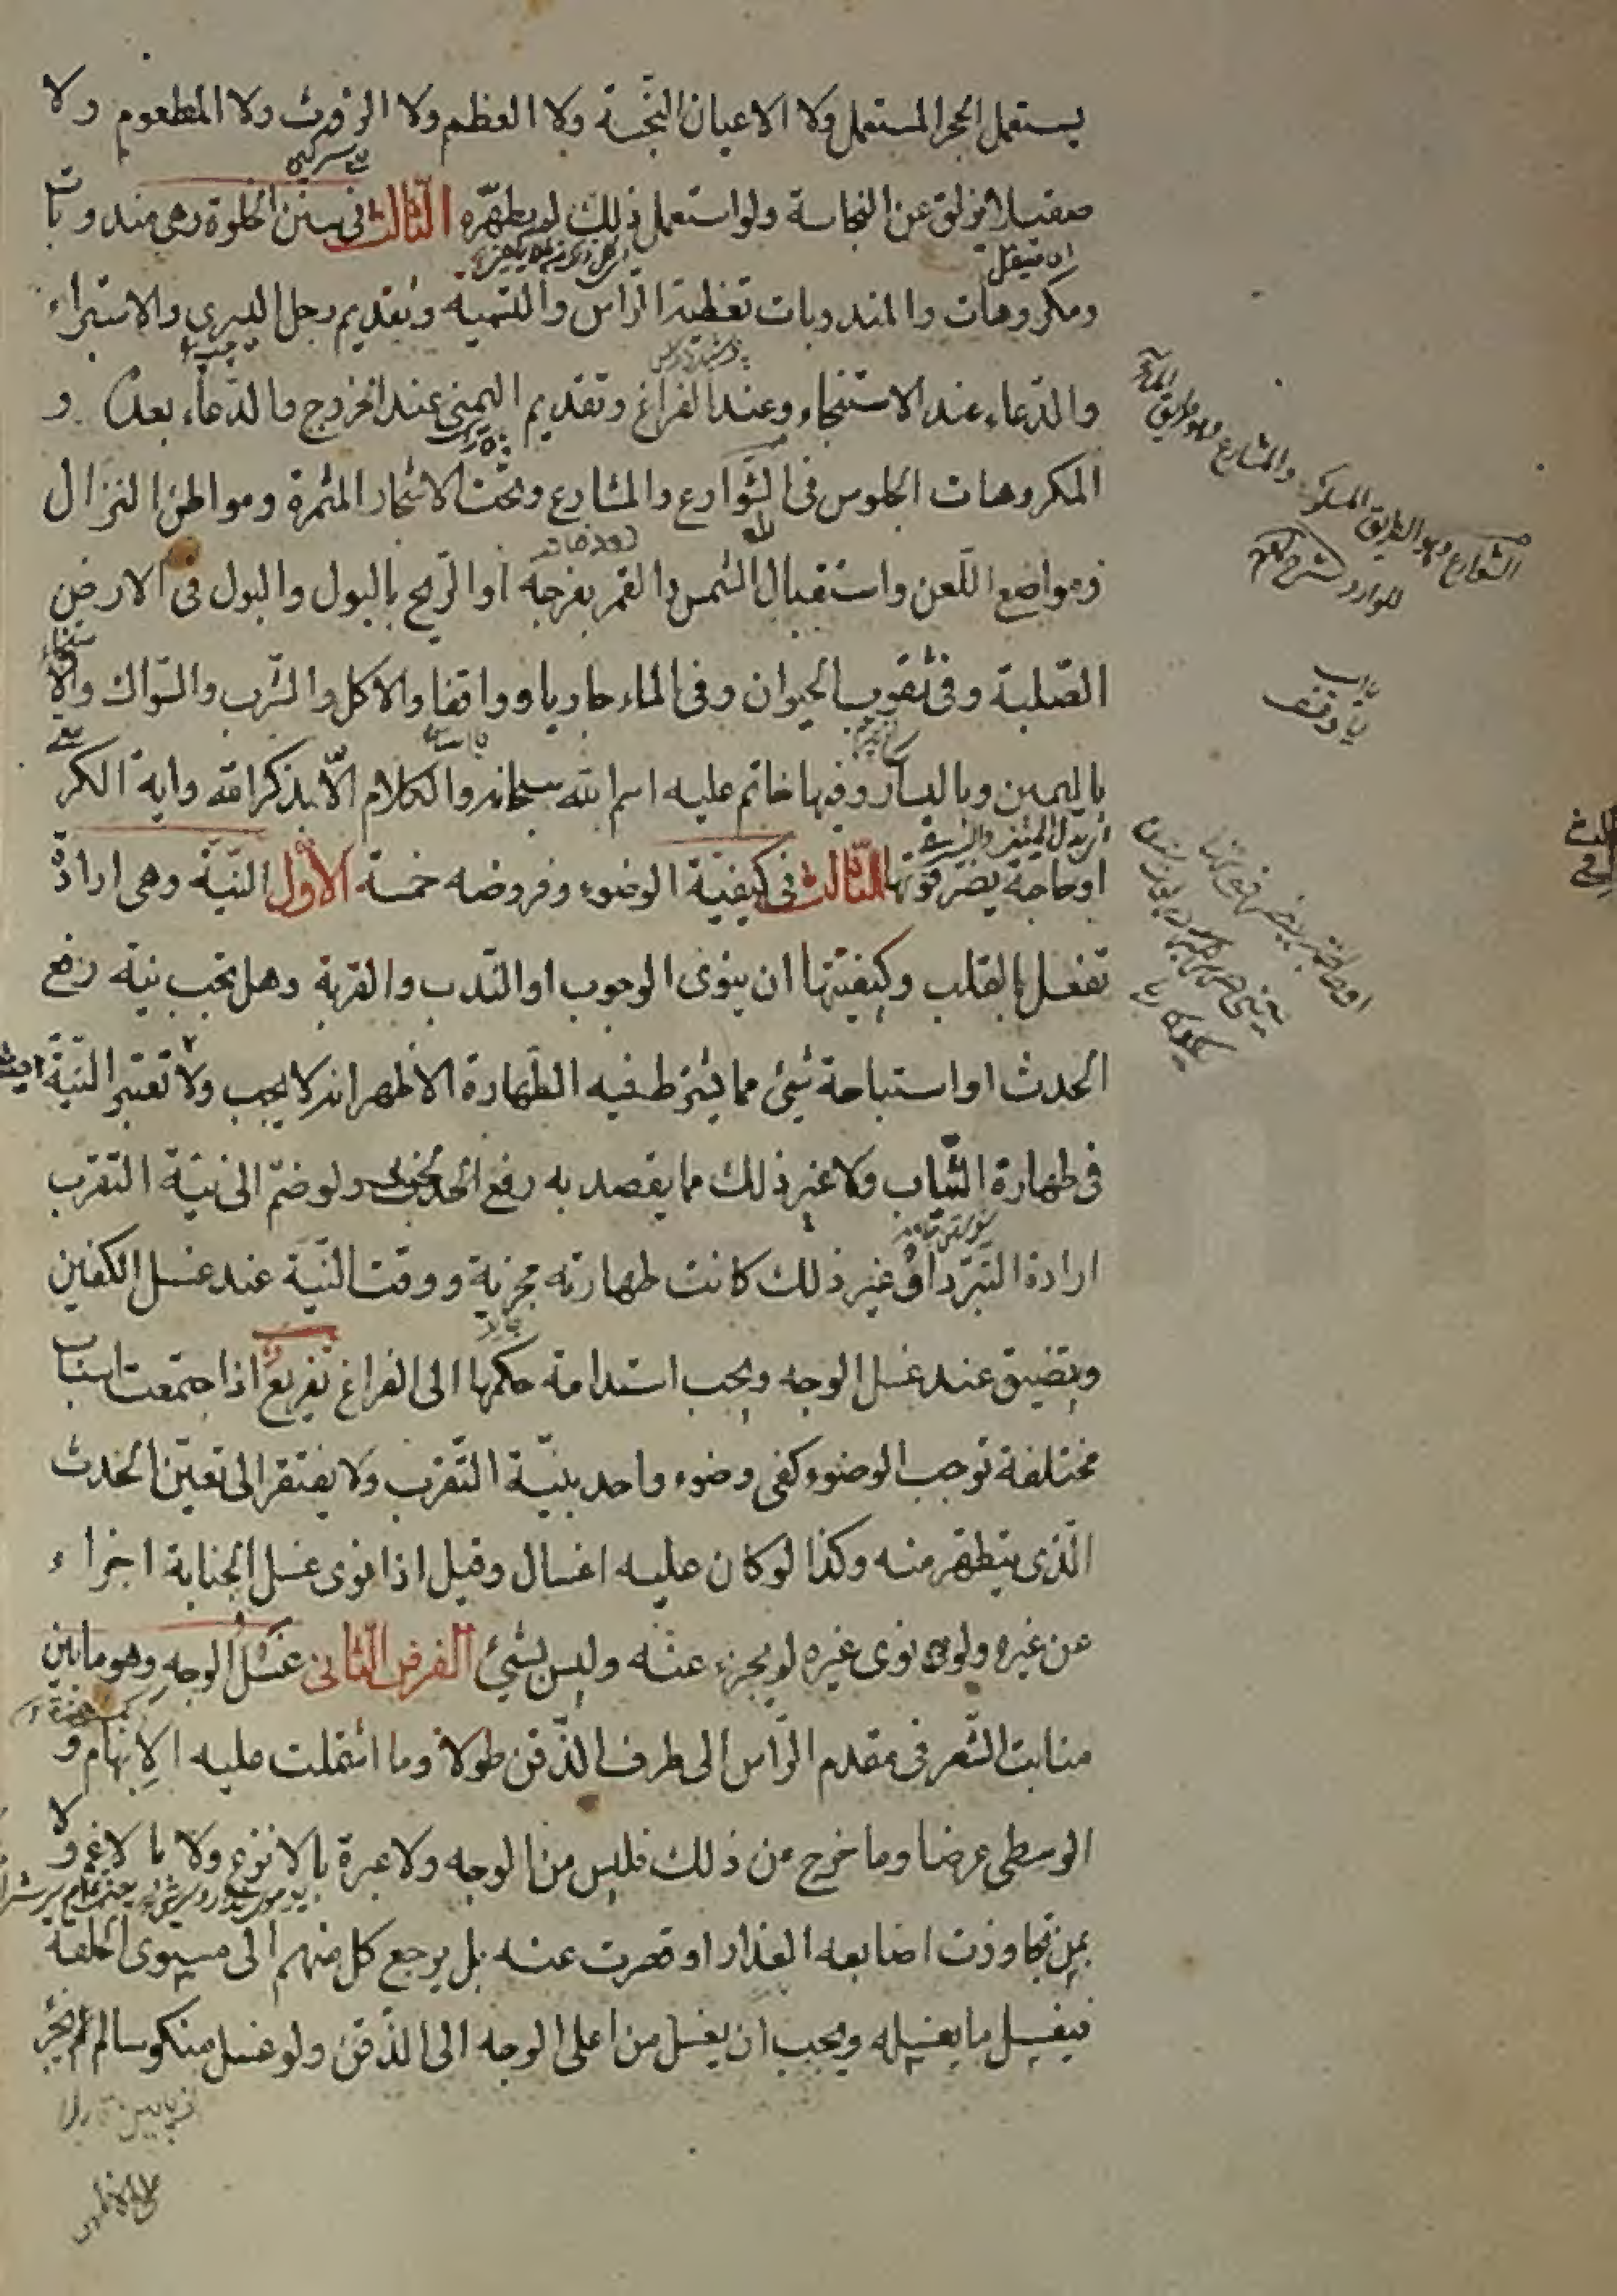 يستعمل الحجر المستعمل ولا الاعيان النجسة ولا العظم ولا الروث ولا المطعوم ولا
صقيلا يزلق عن النجاسة ولو استعمل ذلك لم يطهّره الثالث في سنن الخلوة وهى مندوبات
ومكروهات والمندوبات تغطية الرّاس والتسمية وتقديم رجل اليسرى والاستبراء
والدّعاء عند الاستنجاء وعند الفراغ وتقديم اليمنى عند الخروج والدّعاء بعده و
المكروهات الجلوس فى الشّوارع والمشارع وتحت الاشجار المثمرة ومواطن النزال
ومواضع اللّعن واستقبال الشمس والقمر بفرجه او الرّيح بالبول والبول فى الارض
الصّلبة وفى ثقوب الحيوان وفى الماء جاريا وواقفا والاكل والشّرب والسّواك والا
باليمين وباليسار وفيها خاتم عليه اسم الله سبحانه والكلام الّا بذكر الله واية الكر
او حاجة يضرّ فوتها الثّالث فى كيفيّة الوضوء وفروضه خمسة الأول النّيّة وهى ارادة
تفعل بالقلب وكيفيّتها ان ينوى الوجوب او النّدب والقربة وهل يجب نية رفع
الحدث او استباحة شيئ مما يشترط فيه الطّهارة الاظهر انه لا يجب ولا تعتبر النّيّة
فى طهارة الثّياب ولا غير ذلك مما يقصد به رفع الخبث ولو ضمّ الى نيّة التقرّب
ارادة التّبرّد او غير ذلك كانت طهارته مجزية ووقت النّيّة عند غسل الكفين
ويتضيق عند غسل الوجه ويجب استدامة حكمها الى الفراغ تفريع اذا اجتمعت اسباب
مختلفة توجب الوضوء كفى وضوء واحد بنيّة التّقرّب ولا يفتقر الى تعيّن الحدث
الّذى يتطهّر منه وكذا لو كان عليه اغسال وقيل اذا نوى غسل الجنابة اجزاء
عن غيره ولو نوى غيره لم يجزء عنه وليس بشيئ الفرض الثانى غسل الوجه وهو ما بين
منابت الشعر فى مقدم الرّاس الى طرف الذّقن طولا وما اشتملت عليه الإبهام و
الوسطى عرضا وما خرج عن ذلك فليس من الوجه ولا عبرة بالانزع ولا بالاغم ولا
بمن تجاوزت اصابعه العذار او قصرت عنه بل يرجع كل منهم الى مستوى الخلقة
فيغسل ما يغسله ويجب ان يغسل من اعلى الوجه الى الذّقن ولو غسل منكوسا لم يجز
الشوارع وهو الطريق المسلوك والمشارع وهو طريق الماء